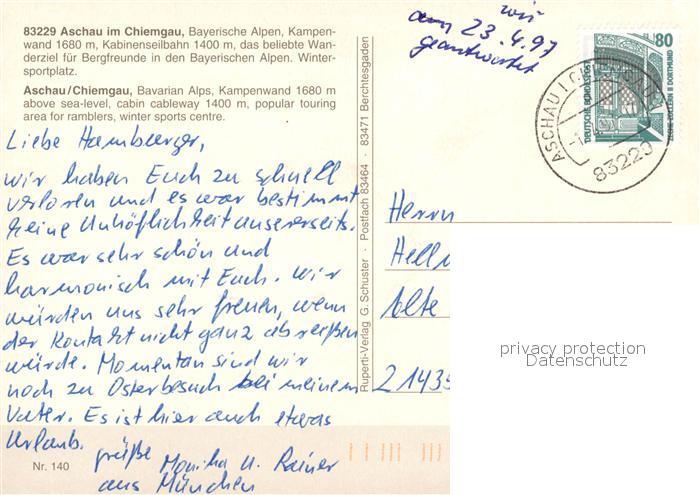 83229 Aschau im Chiemgau, Bayerische Alpen, Kampen-
wand 1680 m, Kabinenseilbahn 1400 m, das beliebte Wan-
derziel für Bergfreunde in den Bayerischen Alpen. Winter-
sportplatz.
Aschau/Chiemgau, Bavarian Alps, Kampenwand 1680 m
above sea-level, cabin cableway 1400 m, popular touring
area for ramblers, winter sports centre.
Liebe Hamburger,
wir haben Euch zu schnell
verloren und es war bestimmt
keine Unhöflichkeit unsererseits.
Es war sehr schön und
harmonisch mit Euch. Wir
würden uns sehr freuen, wenn
der Kontakt nicht ganz abreißen
würde. Momentan sind wir
noch zu Osterbesuch bei meinem
Vater. Es ist hier auch etwas
Urlaub.
Grüße Monika u. Rainer
aus München
Nr. 140
Ruperti-Verlag G. Schuster · Postfach 83464 · 83471 Berchtesgaden
wir
am 23.4.97
geantwortet
80
DEUTSCHE BUNDESPOST
ZECHE ZOLLERN II DORTMUND
ASCHAU I. CHIEMGAU
83229
Herrn
Hell
Alte
21435
privacy protection
Datenschutz